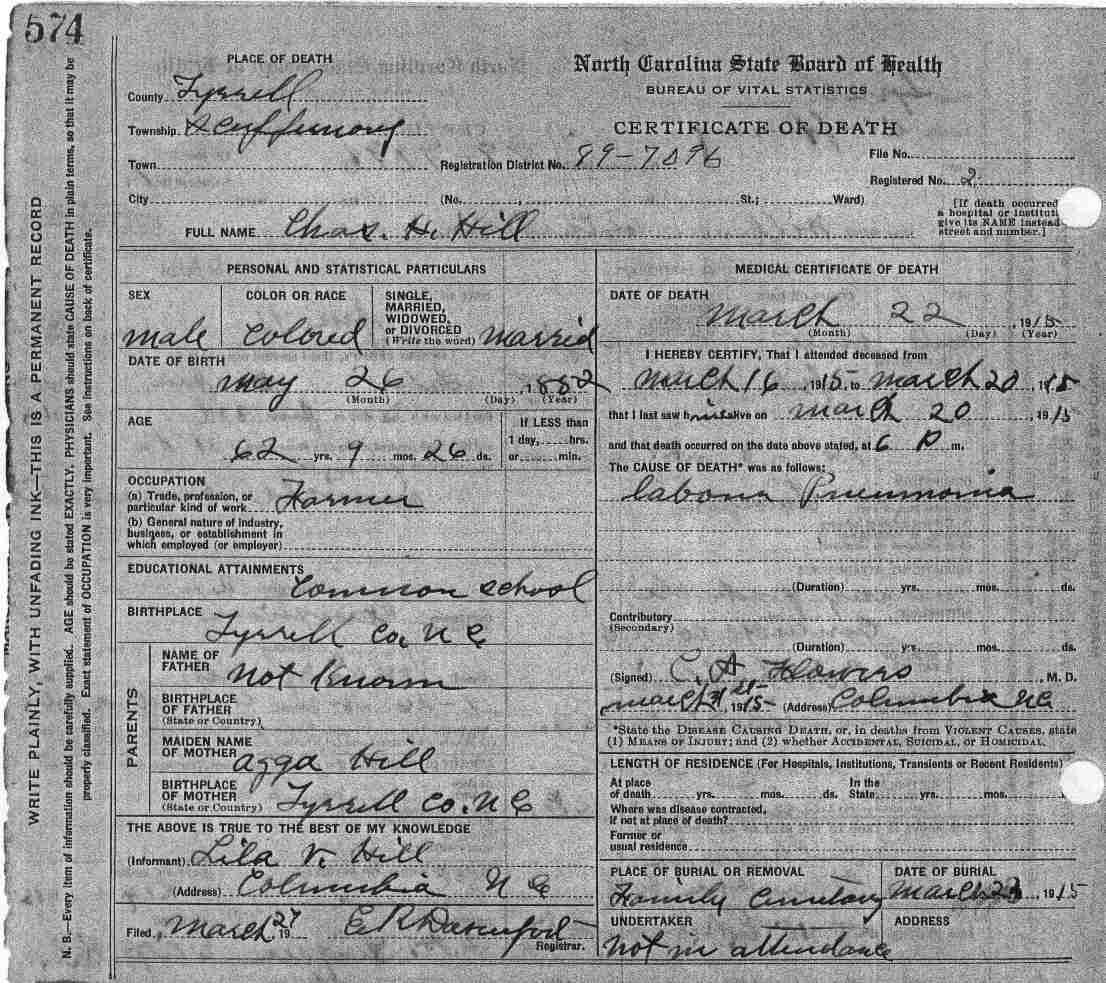 574
PLACE OF DEATH
North Carolina State Board of Health
BUREAU OF VITAL STATISTICS
CERTIFICATE OF DEATH
County Tyrrell
Township Scuppernong
Town
Registration District No. 89-7096
File No.
Registered No. 2
City (No. , St.; Ward)
[If death occurred
a hospital or institut
give its NAME instead
street and number.]
FULL NAME Chas. H. Hill
PERSONAL AND STATISTICAL PARTICULARS
SEX
male
COLOR OR RACE
Colored
SINGLE,
MARRIED,
WIDOWED,
or DIVORCED
(Write the word) married
DATE OF BIRTH
may 26 , 1852
(Month) (Day) (Year)
AGE
62 yrs. 9 mos. 26 ds.
If LESS than
1 day, hrs.
or min.
OCCUPATION
(a) Trade, profession, or
particular kind of work Farmer
(b) General nature of industry,
business, or establishment in
which employed (or employer)
EDUCATIONAL ATTAINMENTS
Common school
BIRTHPLACE
Tyrrell Co, N C
PARENTS
NAME OF
FATHER Not Known
BIRTHPLACE
OF FATHER
(State or Country)
MAIDEN NAME
OF MOTHER agga Hill
BIRTHPLACE
OF MOTHER
(State or Country) Tyrrell Co. N C
THE ABOVE IS TRUE TO THE BEST OF MY KNOWLEDGE
(Informant) Lila V. Hill
(Address) Columbia N C
Filed, March 27 19 E R Davenport
Registrar.
MEDICAL CERTIFICATE OF DEATH
DATE OF DEATH
March 22 , 1915
(Month) (Day) (Year)
I HEREBY CERTIFY, That I attended deceased from
march 16 , 1915, to march 20 , 1915
that I last saw him alive on march 20 , 1915
and that death occurred on the date above stated, at 6 P m.
The CAUSE OF DEATH* was as follows:
Pneumonia
(Duration) yrs. mos. ds.
Contributory
(Secondary)
(Duration) yrs. mos. ds.
(Signed) C. A. Flowers , M. D.
march 1915 (Address) Columbia N C
*State the DISEASE CAUSING DEATH, or, in deaths from VIOLENT CAUSES, state
(1) MEANS OF INJURY; and (2) whether ACCIDENTAL, SUICIDAL, or HOMICIDAL.
LENGTH OF RESIDENCE (For Hospitals, Institutions, Transients or Recent Residents)
At place of death yrs. mos. ds. In the State yrs. mos.
Where was disease contracted,
if not at place of death?
Former or
usual residence
PLACE OF BURIAL OR REMOVAL
Family Cemetary
DATE OF BURIAL
March 23, 1915
UNDERTAKER
Not in attendance
ADDRESS
WRITE PLAINLY, WITH UNFADING INK—THIS IS A PERMANENT RECORD
N. B.—Every item of information should be carefully supplied. AGE should be stated EXACTLY. PHYSICIANS should state CAUSE OF DEATH in plain terms, so that it may be
properly classified. Exact statement of OCCUPATION is very important. See instructions on back of certificate.